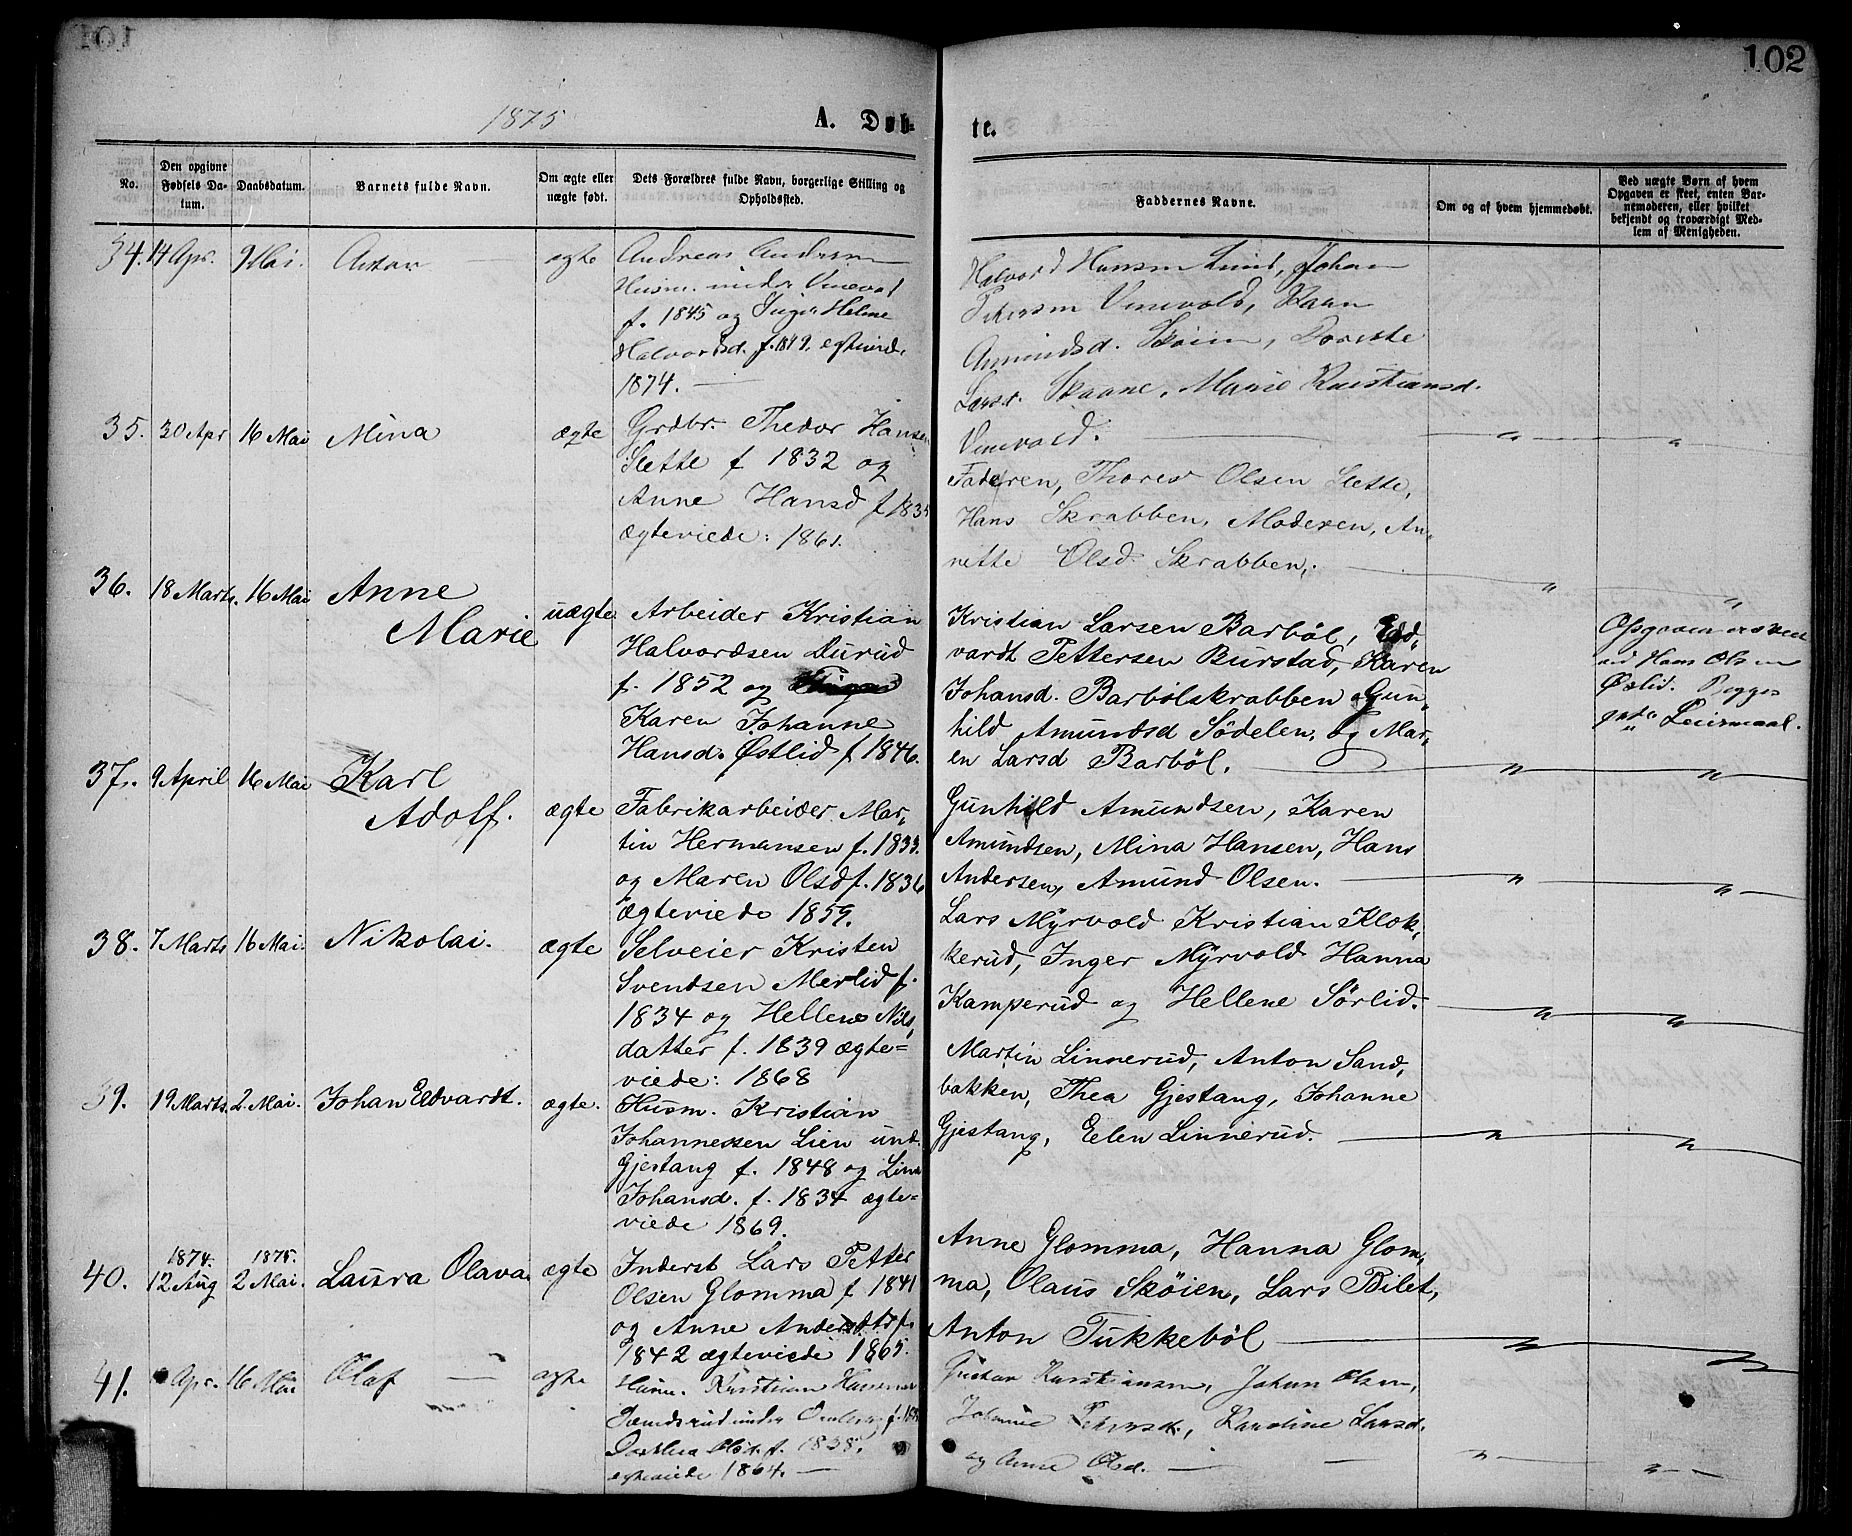 101
102
1875
A. Døb-
te.
No.
Den opgivne
Fødsels Da-
tum.
Daabsdatum.
Barnets fulde Navn.
Om ægte eller
uægte født.
Dets Forældres fulde Navn, borgerlige Stilling og
Opholdssted.
Faddernes Navne.
Om og af hvem hjemmedøbt.
Ved uægte Børn af hvem
Opgaven er skeet, enten Bar-
nemoderen, eller hvilket
bekjendt og troværdigt Med-
lem af Menigheden.
34. 14 Apr. 9 Mai. Anton ægte
Andreas Andersen
Husm. under Vinevold
f. 1845 og Inger Helene
Halvorsd. f. 1849. egteviede
1874.
Halvord Hansen Lund, Johan
Petersen Vinevold, Karen
Amundsd. Skøien, Dorete
Larsd. Skaane, Marie Kristiansd.
Vinevold.
35. 30 Apr 16 Mai Mina ægte
Grdbr. Thedor Hansen
Slette f 1832 og
Anne Hansd f 1835
ægteviede: 1861.
Faderen, Thorer Olsen Slette,
Hans Skrabben, Moderen, An-
nette Olsd Skrabben,
36. 18 Marts. 16 Mai Anne
Marie uægte
Arbeider Kristian
Halvordsen Durud
f. 1852 og
Karen Johanne
Hansd. Østlid f 1846.
Kristian Larsen Barböl, Ed-
vardt Pettersen Burstad, Karen
Johansd. Barbölskrabben, Gun-
hild Amundsd Södelen, og Mar-
en Larsd Barböl.
Opgaven
ved Hans Olsen
Østlid. Begges
Leiermaal.
37. 9 April 16 Mai Karl
Adolf. ægte
Fabrikarbeider Mar-
tin Hermansen f. 1833.
og Maren Olsd f. 1836
ægteviede 1859.
Gunhild Amundsen, Karen
Amundsen, Mina Hansen, Hans
Andersen, Amund Olsen.
38. 7 Marts 16 Mai. Nikolai. ægte
Selveier Kristen
Svendsen Merlid f.
1834 og Hellene Nils-
datter f. 1839 ægte=
viede: 1868
Lars Myrvold Kristian Klok-
kerud, Inger Myrvold Hanna
Kamperud og Hellene Sörlid.
39. 19 Marts. 2. Mai. Johan Edvardt. ægte.
Husm. Kristian
Johannessen Lien und.
Gjestang f. 1848 og Lina
Johansd. f. 1834 ægte=
viede 1869.
Martin Linnerud, Anton Sand-
bakken, Thea Gjestang, Johanne
Gjestang, Eelen Linnerud.
1874. 1875.
40. 12 Aug 2 Mai. Laura Olava ægte
Inderst Lars Petter
Olsen Glomma f 1841
og Anne Andersdtr f.
1842 ægteviede 1865.
Anne Glomma, Hanna Glom-
ma, Olaus Skøien, Lars Bilet,
Anton Tukkeböl
41. Apr. 16 Mai Olaf ægte
Husm. Kristian Hansen
under
Dorthea Olsd. f. 1838.
egteviede 1864.
Gustav Kristiansen, Johan Olsen,
Johanne Petersd., Karoline Larsd.
og Anne Olsd.